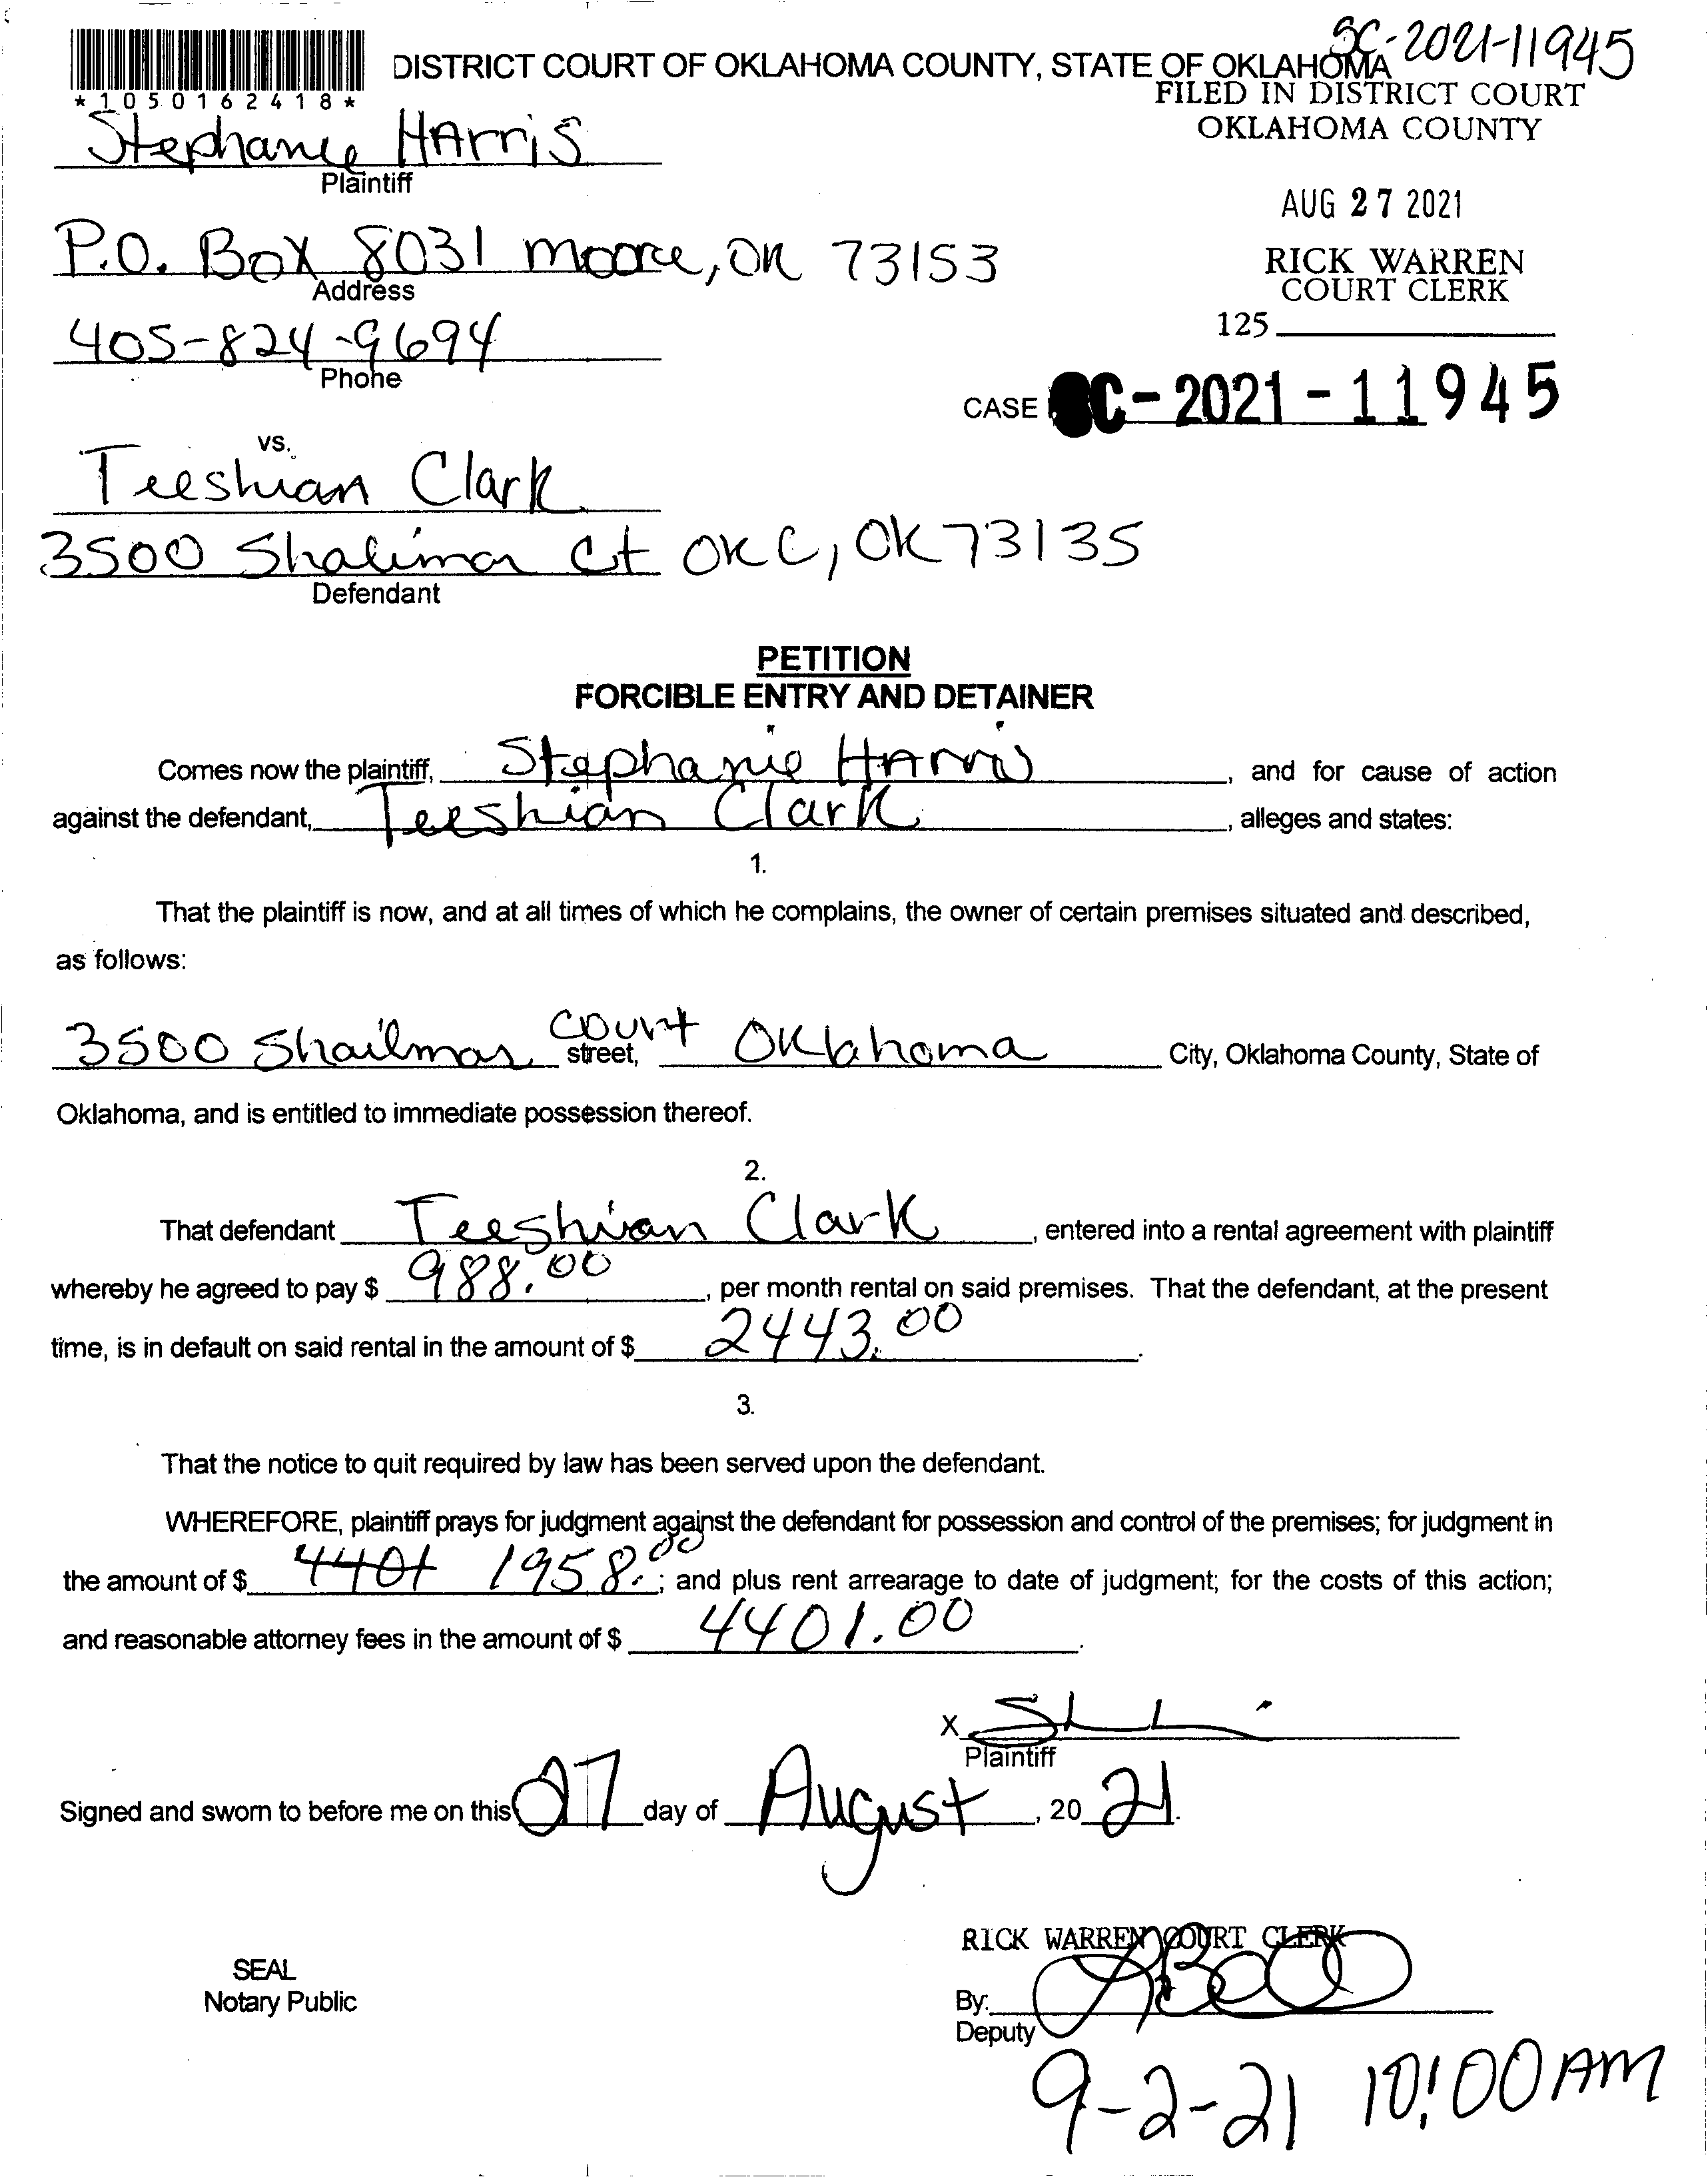 SC-2021-11945
DISTRICT COURT OF OKLAHOMA COUNTY, STATE OF OKLAHOMA
*1050162418*
FILED IN DISTRICT COURT
OKLAHOMA COUNTY
Stephanie HArris
Plaintiff
AUG 27 2021
P.O. Box 8031 moore, OK 73153
Address
RICK WARREN
COURT CLERK
405-824-9694
Phone
125
CASE C-2021-11945
vs.
Teeshian Clark
3500 Shalimar Ct OKC, OK 73135
Defendant
PETITION
FORCIBLE ENTRY AND DETAINER
Comes now the plaintiff, Stephanie HArris, and for cause of action
against the defendant, Teeshian Clark, alleges and states:
1.
That the plaintiff is now, and at all times of which he complains, the owner of certain premises situated and described,
as follows:
3500 Shailmar court street, Oklahoma City, Oklahoma County, State of
Oklahoma, and is entitled to immediate possession thereof.
2.
That defendant Teeshian Clark, entered into a rental agreement with plaintiff
whereby he agreed to pay $ 988.00, per month rental on said premises. That the defendant, at the present
time, is in default on said rental in the amount of $ 2443.00.
3.
That the notice to quit required by law has been served upon the defendant.
WHEREFORE, plaintiff prays for judgment against the defendant for possession and control of the premises; for judgment in
the amount of $ 4401 1958.00; and plus rent arrearage to date of judgment; for the costs of this action;
and reasonable attorney fees in the amount of $ 4401.00.
X
Plaintiff
Signed and sworn to before me on this 27 day of August, 20 21.
RICK WARREN COURT CLERK
SEAL
Notary Public
By:
Deputy
9-2-21 10:00 AM